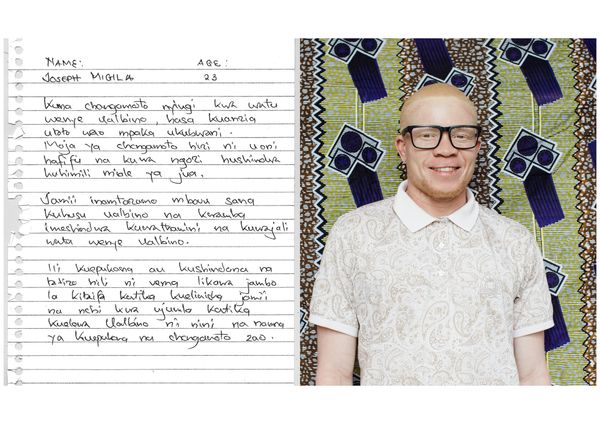 NAME: AGE:
JOSEPH MIGILA 23
Kuna changamoto nyingi kwa watu
wenye Ualbino, hasa kuanzia
utoto wao mpaka ukubwani.
Moja ya changamoto hizi ni uoni
hafifu na kuwa ngozi hushindwa
kuhimili miale ya jua.
Jamii inamtazamo mbovu sana
kuhusu Ualbino na kwamba
imeshindwa kuwathamini na kuwajali
watu wenye Ualbino.
Ili kuepukana au kushindana na
tatizo hili ni vema likawa jambo
la kitaifa katika kuelimisha jamii
na nchi kwa ujumla katika
kuelewa Ualbino ni nini na namna
ya kuepukana na changamoto zao.